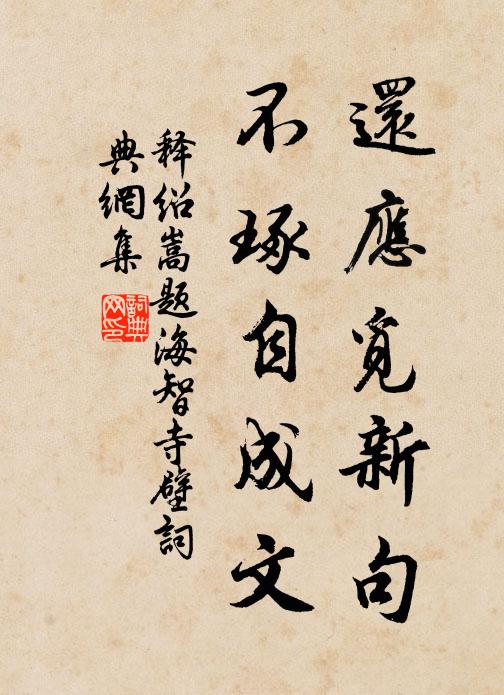 還應覓新句
不琢自成文
釋紹嵩題海智寺壁詞
典網集
詞典
网印